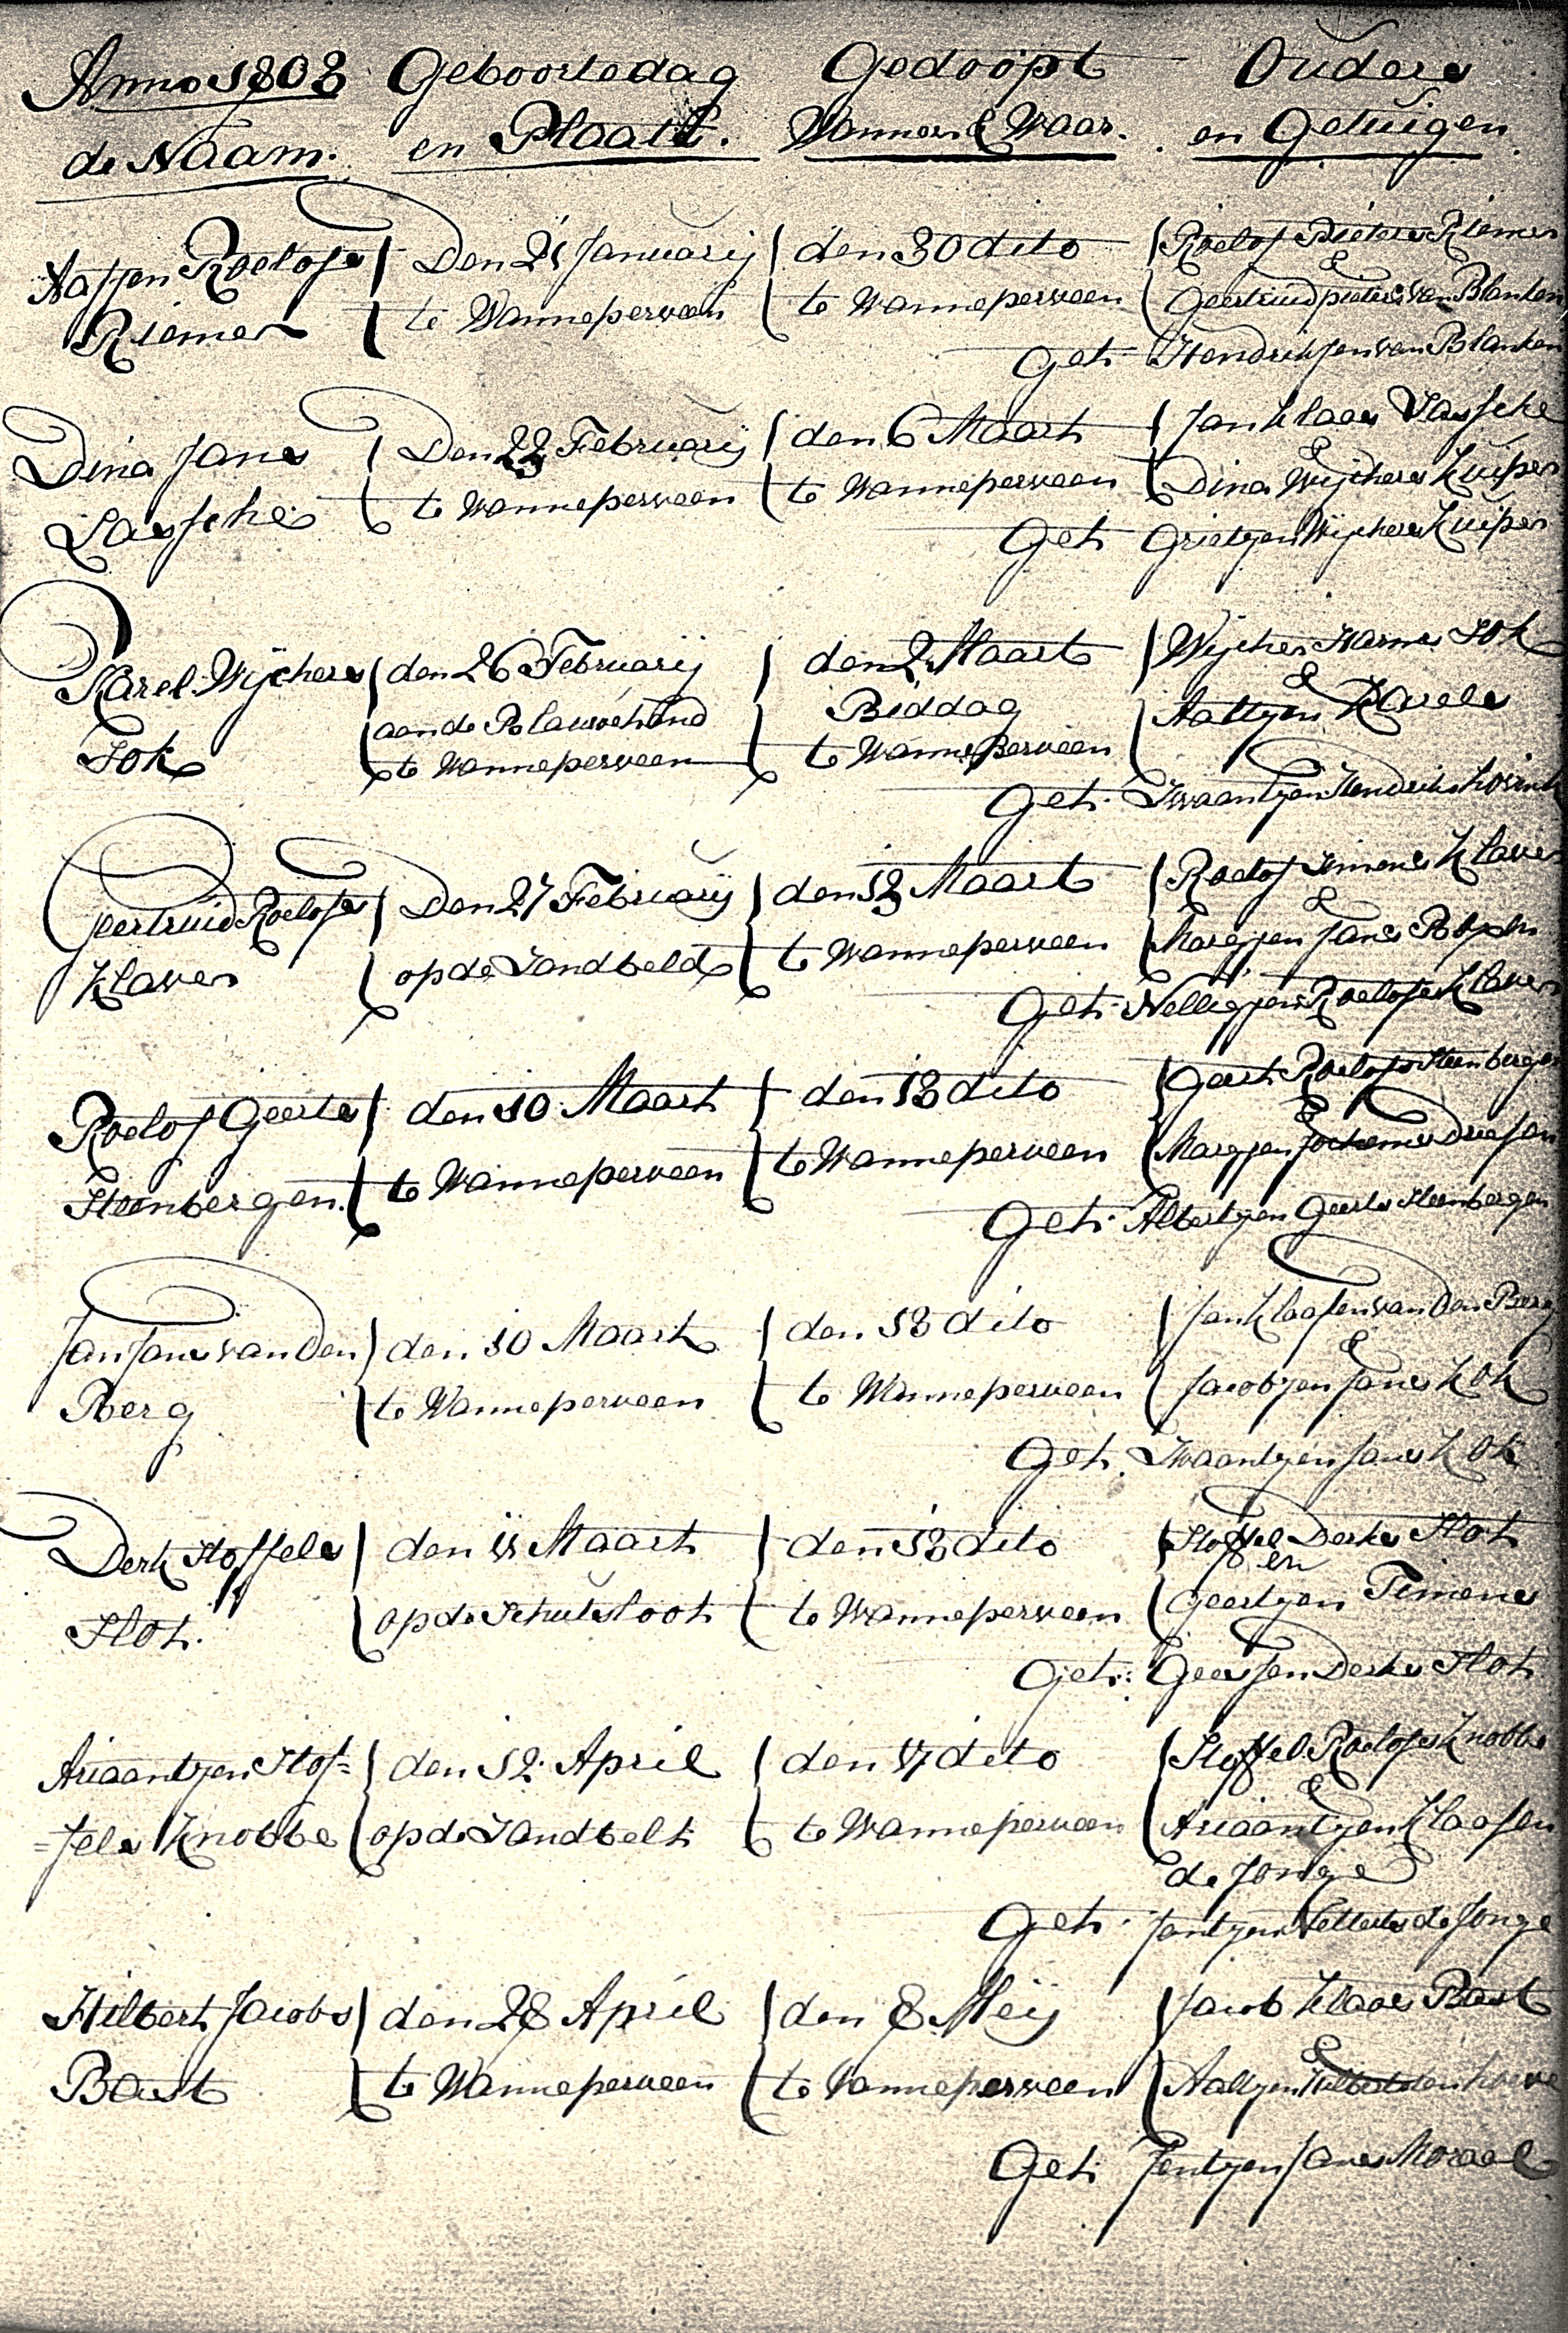 Anno 1808 Geboortedag Gedoopt Ouders
de Naam. en Plaats. Wanneer & Waar. en Getuigen
Roelofs Den 21 Januarij den 30 dito Roelof Pieters Riemer
&
Riemer te Wanneperveen te Wanneperveen Geertruid pieters van Blanken
Get. Hendrikjen van Blanken
Dina Jans Den 22 Februarij den 6 Maart Jan Klaas Lassche
&
Lassche te Wanneperveen te Wanneperveen Dina Wijchers Kuiper
Get. Grietjen Wijchers Kuiper
Karel Wijchers den 26 Februarij den 2 Maart Wijcher Harms Sok
&
aan de Blauwehand Biddag Aaltjen Karels
Sok te Wanneperveen te Wanneperveen
Get. Zwaantjen Hendriks
Geertruid Roelofs Den 27 Februarij den 13 Maart Roelof Simens Klaver
&
Klaver op de Zandbeld te Wanneperveen Margjen Jans
Get. Nelligjen Roelofs Klaver
Roelof Geerts den 10 Maart den 13 dito Geert Roelofs Steenbergen
&
Steenbergen. te Wanneperveen te Wanneperveen Margjen Jochems Driesen
Get. Albertjen Geerts Steenbergen
Jan Jans van Den den 10 Maart den 13 dito Jan Klaasen van Den Berg
&
Berg te Wanneperveen te Wanneperveen Jacobjen Jans Kok
Get. Zwaantjen Jans Kok
Derk Stoffels den 11 Maart den 13 dito Stoffel Derks Slot
en
Slot. op de Schutsloot te Wanneperveen Geertjen Timens
Get. Geesjen Derks Slot
Ariaantjen Stof= den 12 April den 17 dito Stoffel Roelofs Knobbe
&
=fels Knobbe op de Zandbelt te Wanneperveen Ariaantjen Klaasen
de Jonge
Get. Jantjen de Jonge
Hilbert Jacobs den 28 April den 8 Meij Jacob Klaas Bast
&
Bast te Wanneperveen te Wanneperveen Aaltjen
Get. Jentjen Jans Moraal